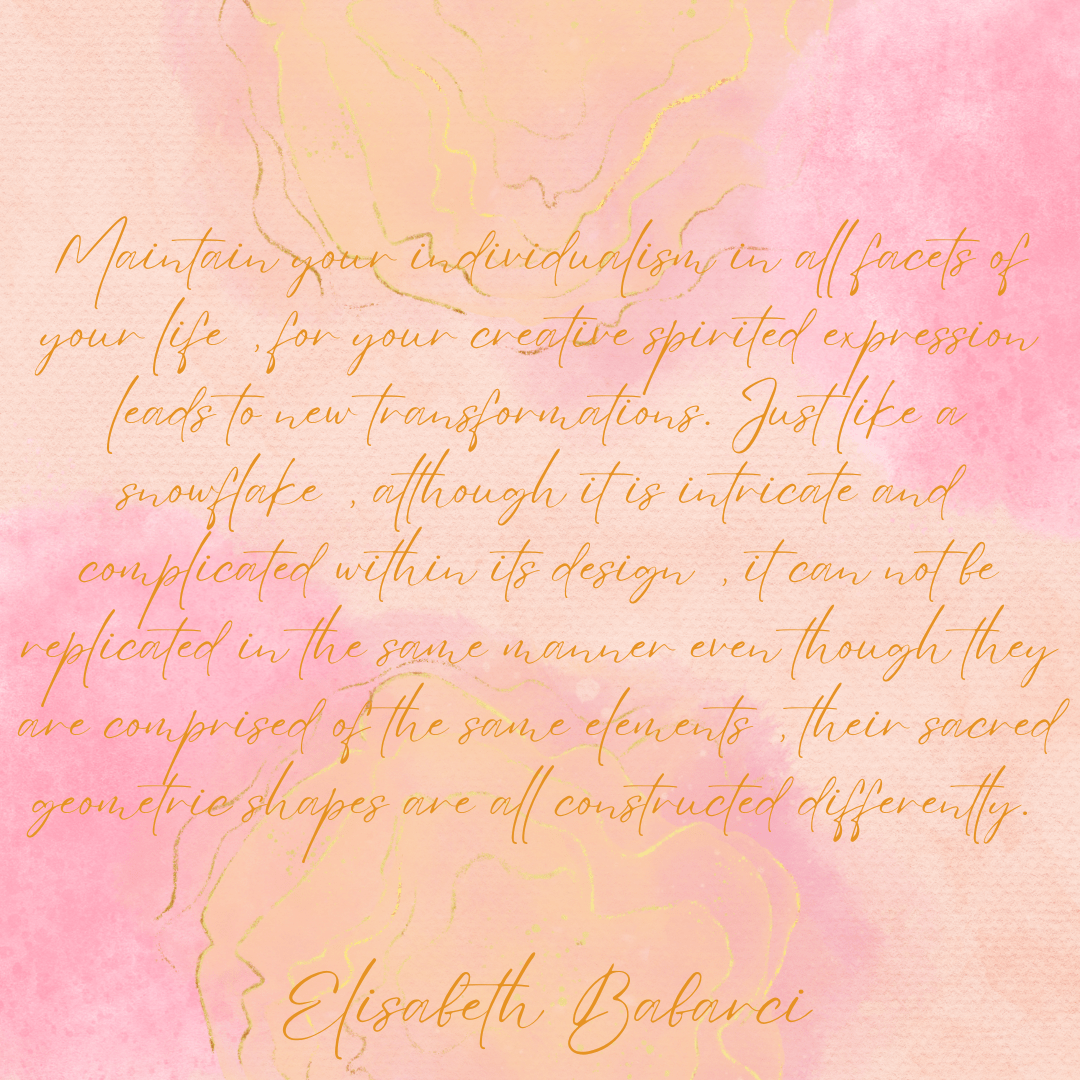 Maintain your individualism in all facets of
your life , for your creative spirited expression
leads to new transformations. Just like a
snowflake , although it is intricate and
complicated within its design , it can not be
replicated in the same manner even though they
are comprised of the same elements , their sacred
geometric shapes are all constructed differently.
Elisabeth Babarci